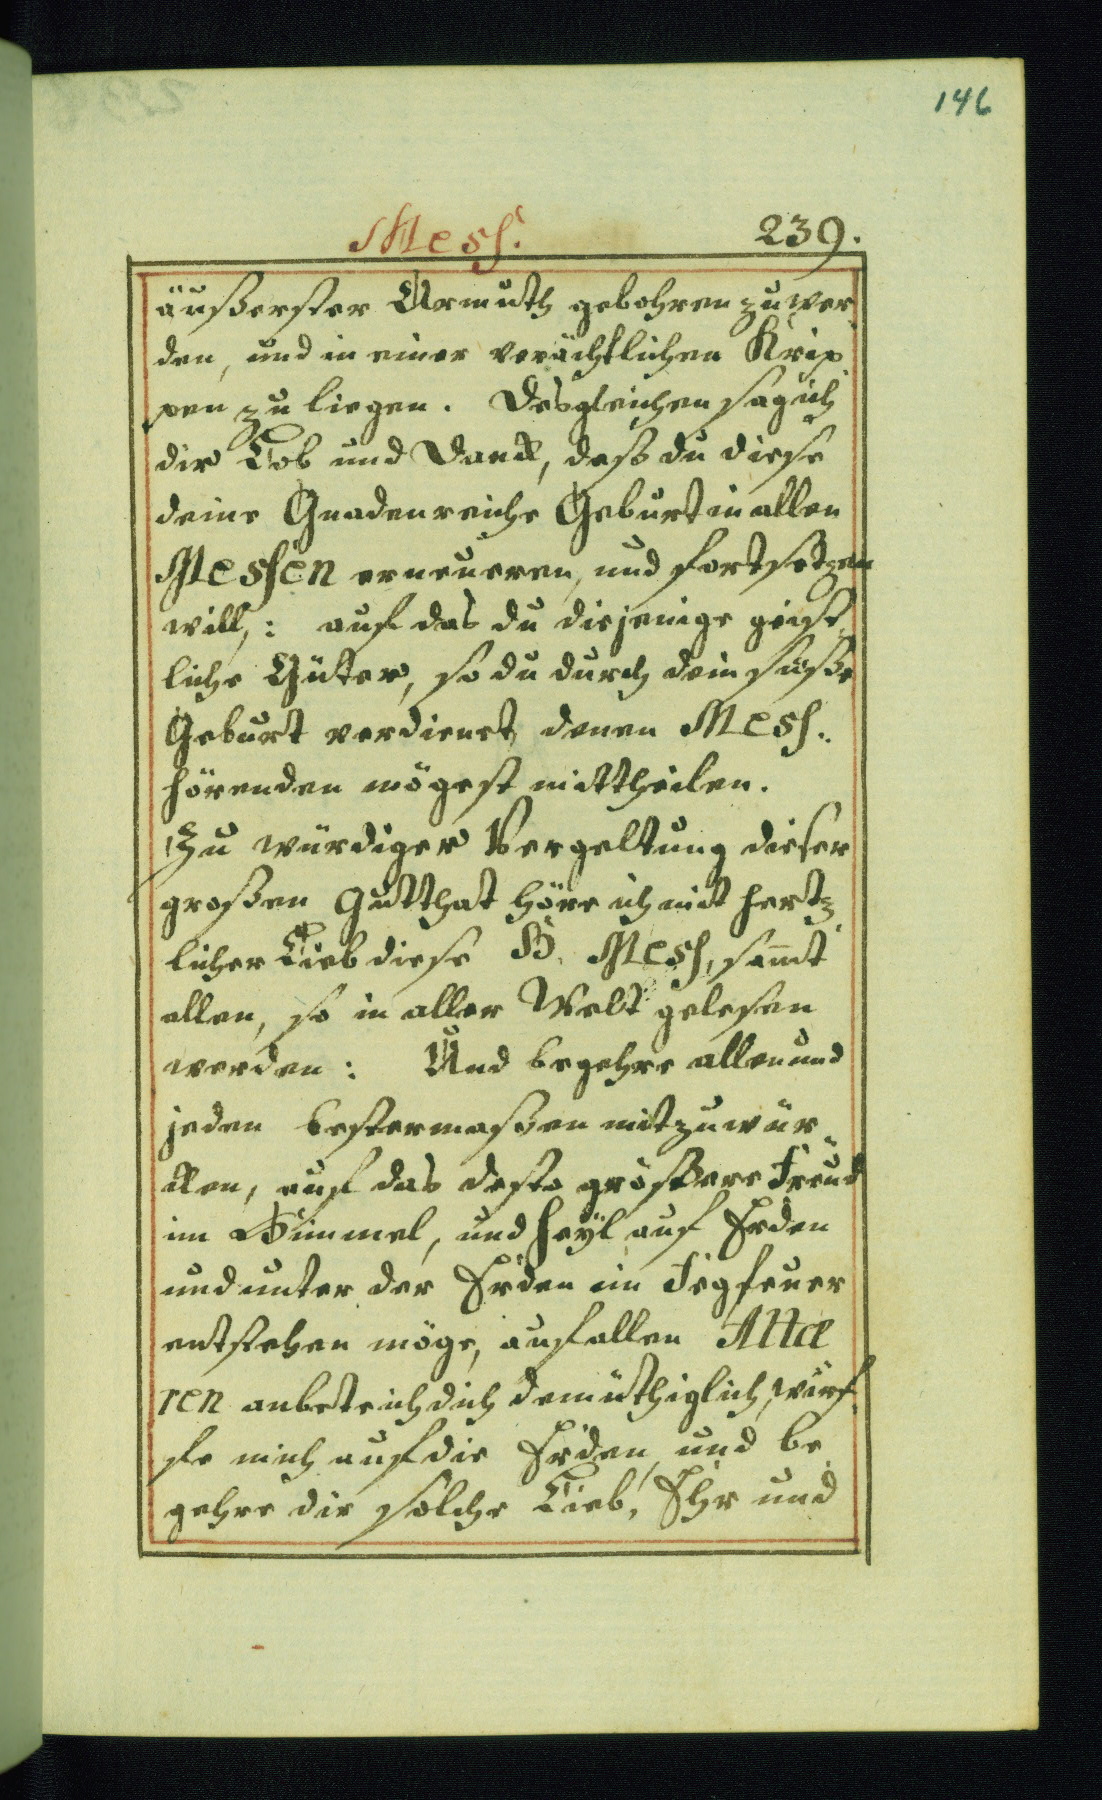 146
Mess. 239.
äußerster Armuth gebohren zu wer
den, und in einer verächtlichen Krip
pen zu liegen. Desgleichen sag ich
dir Lob und Danck, daß du diese
deine Gnadenreiche Geburt in allen
Messen erneueren, und fortsetzen
will,: auf das du diejenige geist
liche Güter, so du durch dein süsse
Geburt verdienet, denen Mess.
hörenden mögest mittheilen.
Zu würdiger Vergeltung dieser
großen Gutthat höre ich mit hertz
licher Lieb diese H. Mess, sam̄t
allen, so in aller Welt gelesen
werden: Und begehre allen und
jeden bestermaßen mitzuwür
cken, auf das desto grössere Freud
im Himmel, und Heÿl auf Erden
und unter der Erden im Fegfeuer
entstehen möge, auf allen Altä
ren anbete ich dich demüthiglich, würf
fe mich auf die Erden, und be
gehre dir solche Lieb, Ehr und